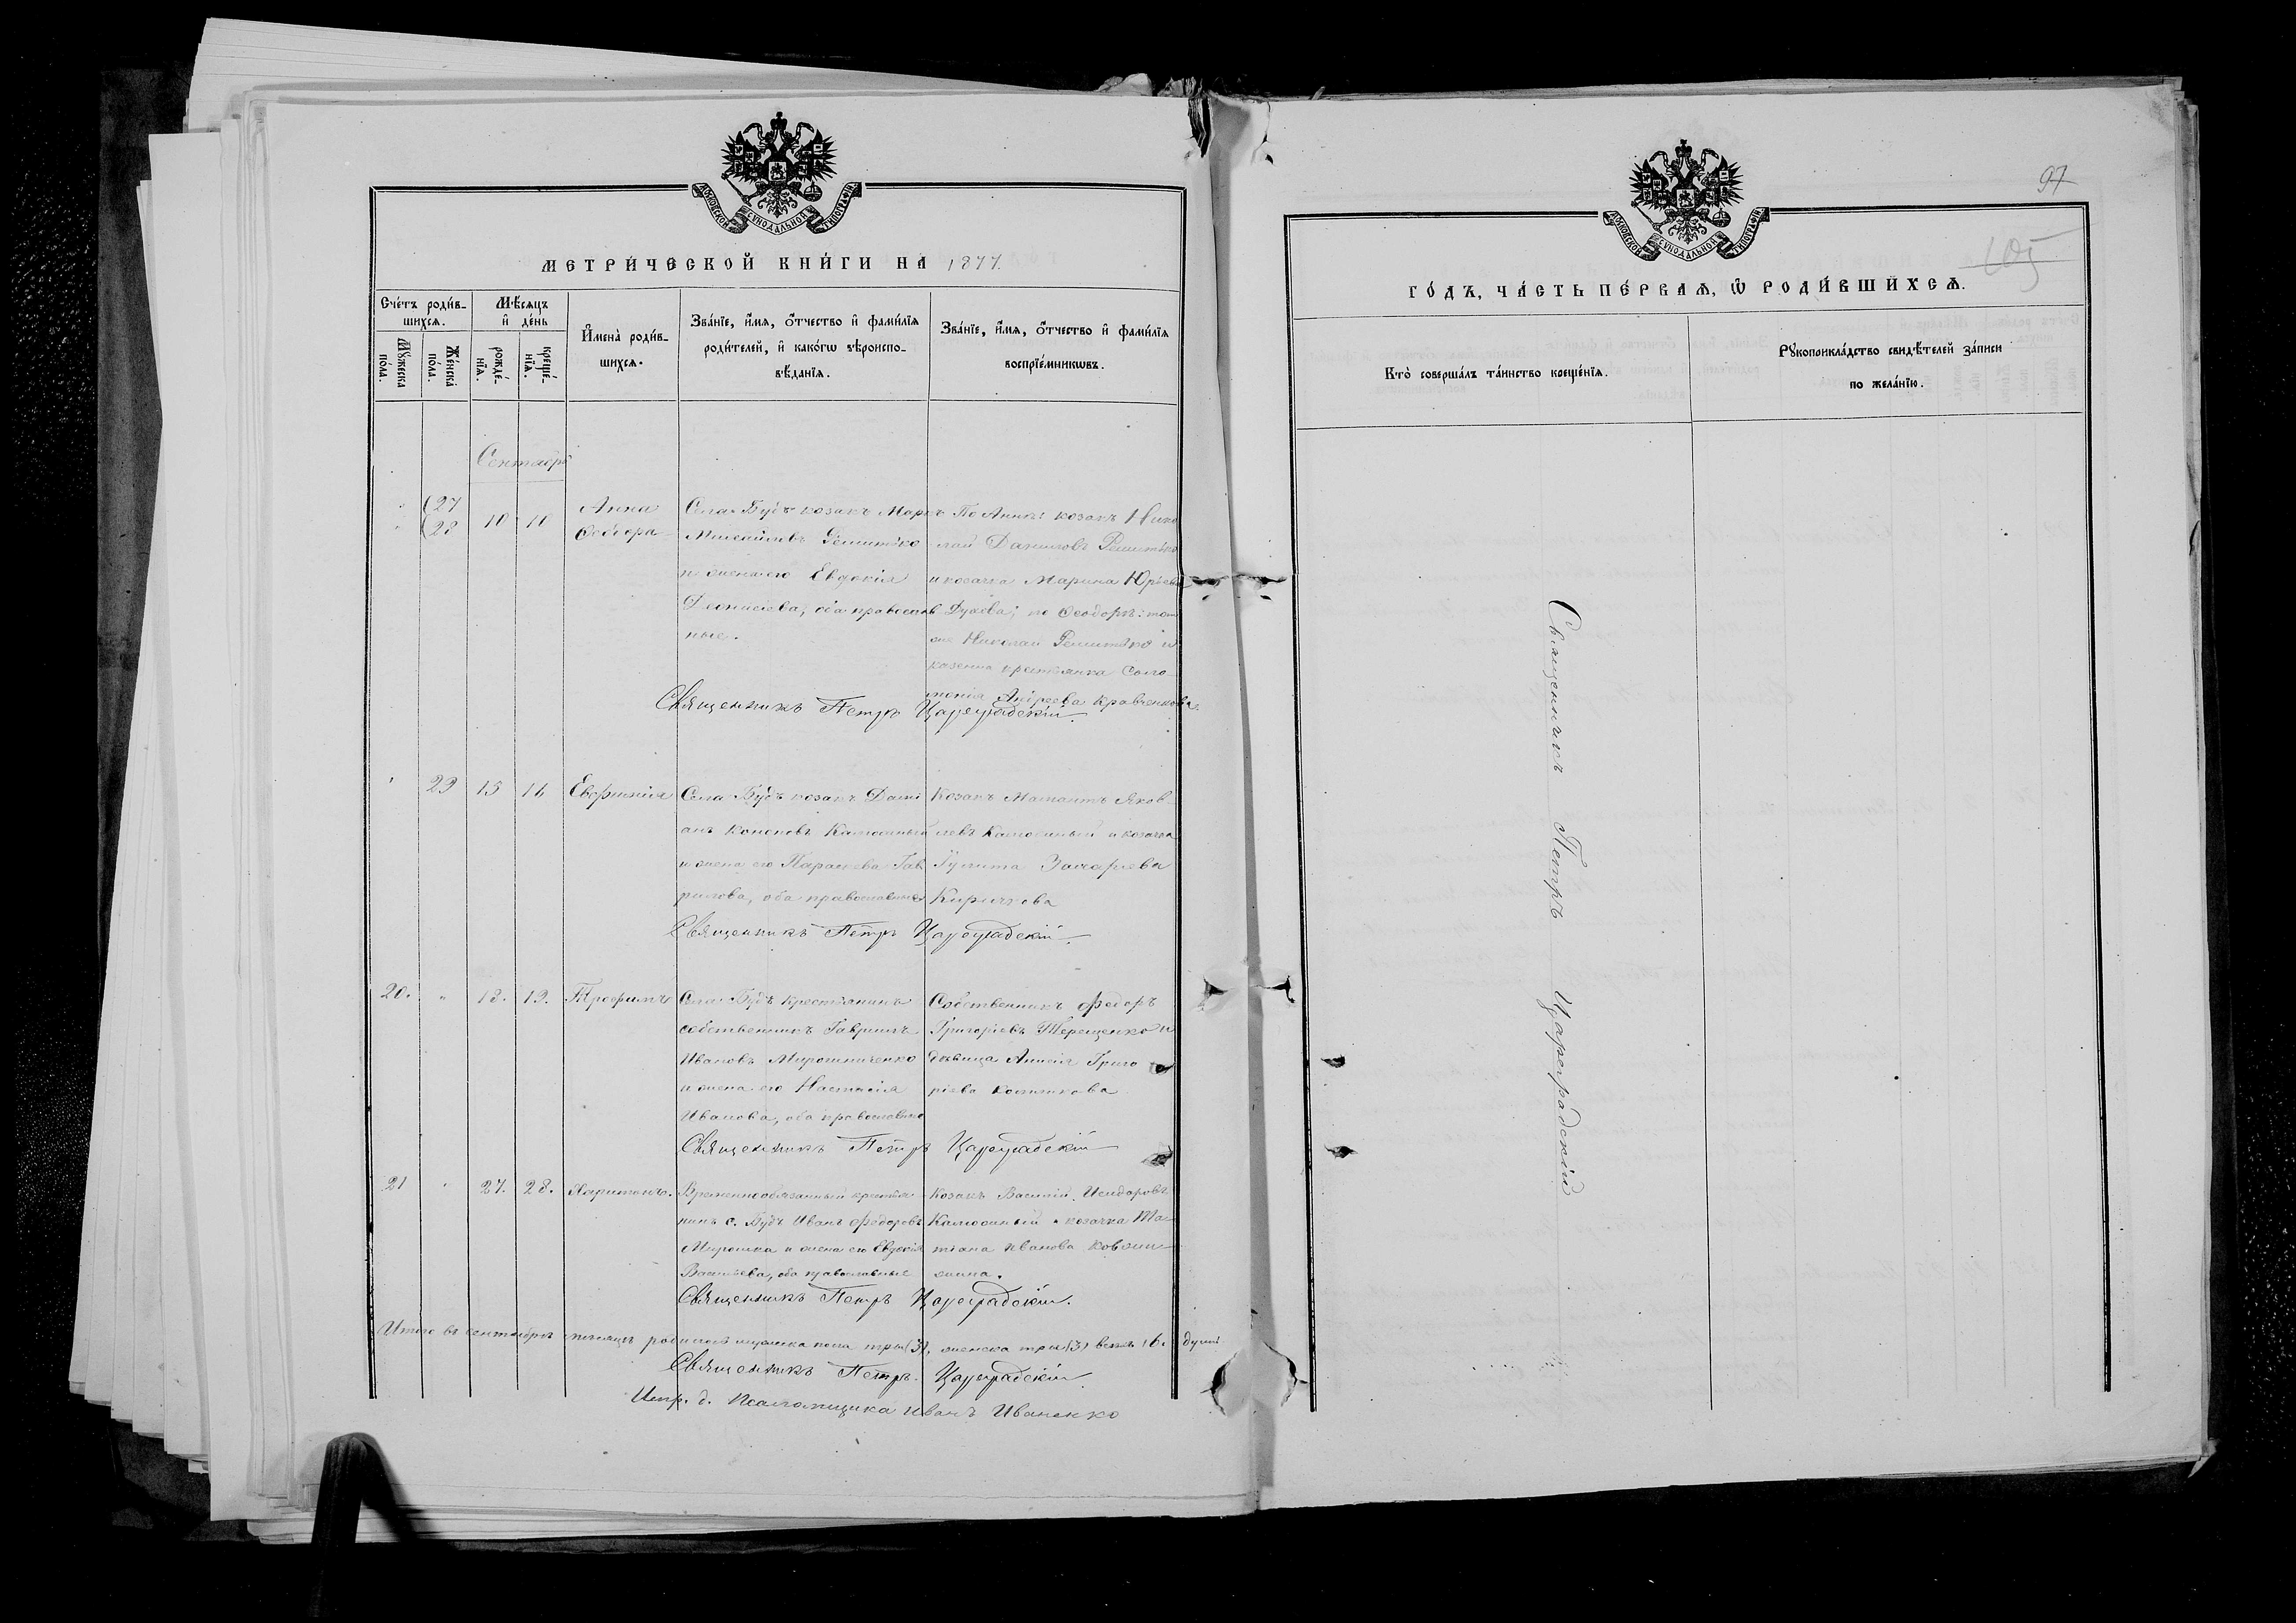 МОСКОВСКОЙ СѴНОДАЛЬНОЙ ТИПОГРАФІИ
МЕТРИ́ЧЕСКОЙ КНИ́ГИ НА 1877.
Сче́тъ роди́в-
шихсѧ.
Мꙋ́жеска по́ла.
Же́нска по́ла.
Мѣ́сѧцъ
и҆ де́нь
рожде́-нїѧ.
креще́-нїѧ.
И҆мена̀ роди́в-
шихсѧ.
Зва́нїе, и҆́мѧ, ѻ҆́тчество и҆ фами́лїѧ
роди́телей, и҆ како́гѡ вѣроиспо-
вѣ́данїѧ.
Зва́нїе, и҆́мѧ, ѻ҆́тчество и҆ фами́лїѧ
воспрїе́мникѡвъ.
Сентябрь
27
28
10
10
Анна
Ѳеодора
Села Будъ козакъ Марко
Михайловъ Решитько
и жена его Евдокія
Денисіева, оба православ
ные.
По Аннѣ: козакъ Нико
лай Даниловъ Решитько
и козачка Марина Юрьева
Духова; по Ѳеодорѣ: тот
же Николай Решитько и
казенна крестьянка Соло
монія Андреева Кравченкова.
Священникъ Петръ Цареградскій.
29
15
16
Евфимія
Села Будъ козакъ Даміанъ
анъ Кононовъ Калюжный
и жена его Параскева Гав
рилова, оба православные
Козакъ Мамантъ Яков-
левъ Калюжный и козачка
Іулита Захаріева
Киричкова
Священникъ Петръ Цареградскій.
20.
"
18.
19.
Трофимъ
Села Будъ крестьянинъ
собственникъ Гавріилъ
Ивановъ Мирошниченко
и жена его Настасія
Иванова, оба православные
Собственникъ Федоръ
Григоріевъ Терещенко и
дѣвица Анисія Григо
ріева
Священникъ Петръ Цареградскій
21
27.
28.
Харитонъ.
Временнообязанный крестья
нинъ с. Будъ Иванъ Федоровъ
Мирошка и жена его Евдокія
Васильева, оба православные
Козакъ Василій Исидоровъ
Калюжный и козачка Та
тіана Иванова
Священникъ Петръ Цареградскій.
Итого въ сентябрѣ мѣсяцѣ родилось мужска пола три (3), женска три (3) всѣхъ (6.) душъ
Священникъ Петръ Цареградскій
Испр. д. Псаломщика Иванъ Иваненко
97
105
МОСКОВСКОЙ СѴНОДАЛЬНОЙ ТИПОГРАФІИ
ГО́ДЪ, ЧА́СТЬ ПЕ́РВАѦ, Ѡ҆ РОДИ́ВШИХСѦ.
Кто̀ соверша́лъ та́инство креще́нїѧ.
Рꙋкоприкла́дство свидѣ́телей за́писи
по жела́нїю.
Священникъ Петръ Цареградскій